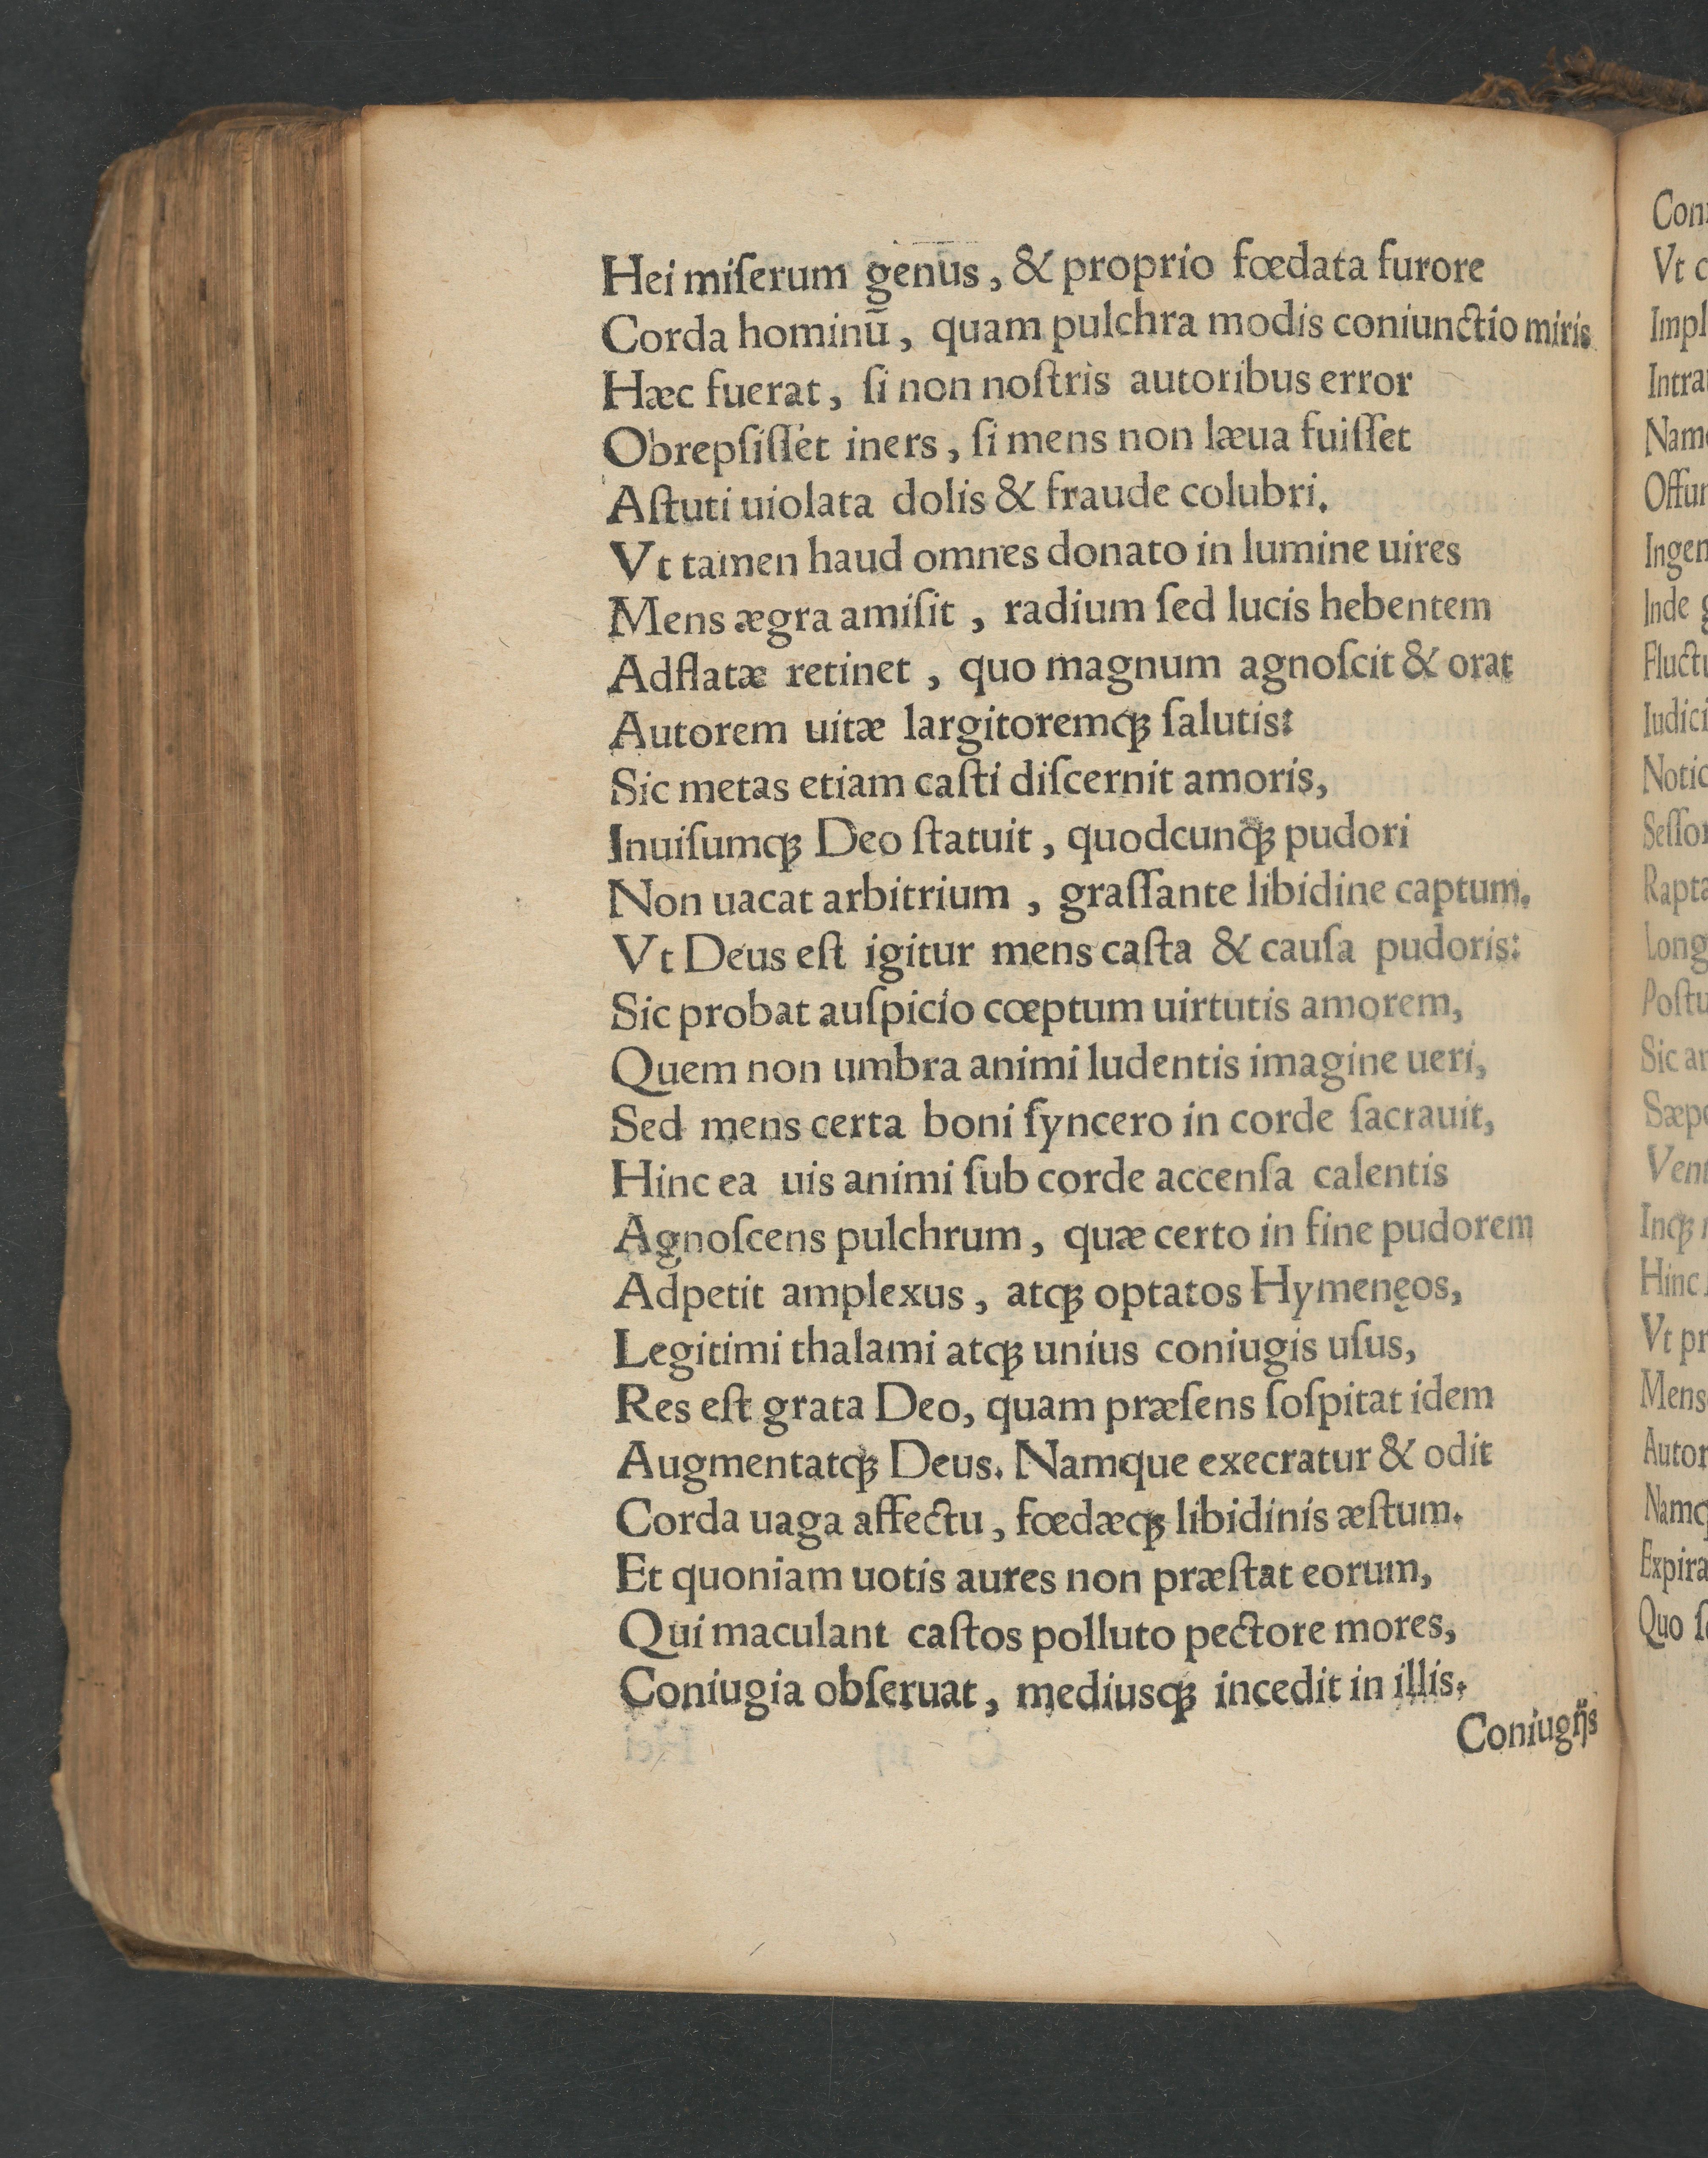 Hei miſerum genus, & proprio fœdata furore
Corda hominū, quam pulchra modis coniunctio miris
Hæc fuerat, ſi non noſtris autoribus error
Obrepſiſſet iners, ſi mens non læua fuiſſet
Aſtuti uiolata dolis & fraude colubri.
Vt tamen haud omnes donato in lumine uires
Mens ægra amiſit, radium ſed lucis hebentem
Adflatæ retinet, quo magnum agnoſcit & orat
Autorem uitæ largitoremq́ꝫ ſalutis:
Sic metas etiam caſti diſcernit amoris,
Inuiſumq́ꝫ Deo ſtatuit, quodcunq́ꝫ pudori
Non uacat arbitrium, graſſante libidine captum.
Vt Deus eſt igitur mens caſta & cauſa pudoris:
Sic probat auſpicio cœptum uirtutis amorem,
Quem non umbra animi ludentis imagine ueri,
Sed mens certa boni ſyncero in corde ſacrauit,
Hinc ea uis animi ſub corde accenſa calentis
Agnoſcens pulchrum, quæ certo in fine pudorem
Adpetit amplexus, atqꝫ optatos Hymenęos,
Legitimi thalami atqꝫ unius coniugis uſus,
Res eſt grata Deo, quam præſens ſoſpitat idem
Augmentatq́ꝫ Deus. Namque execratur & odit
Corda uaga affectu, fœdæq́ꝫ libidinis æſtum.
Et quoniam uotis aures non præſtat eorum,
Qui maculant caſtos polluto pectore mores,
Coniugia obſeruat, mediusq́ꝫ incedit in illis.
Coniugĳs
Vt
Intra
Nam
Ingen
Inde
Fluctu
Iudici
Notic
Rapta
Long
Poſtu
Sic
Hinc
Vt
Mens
Autor
Expira
Quo